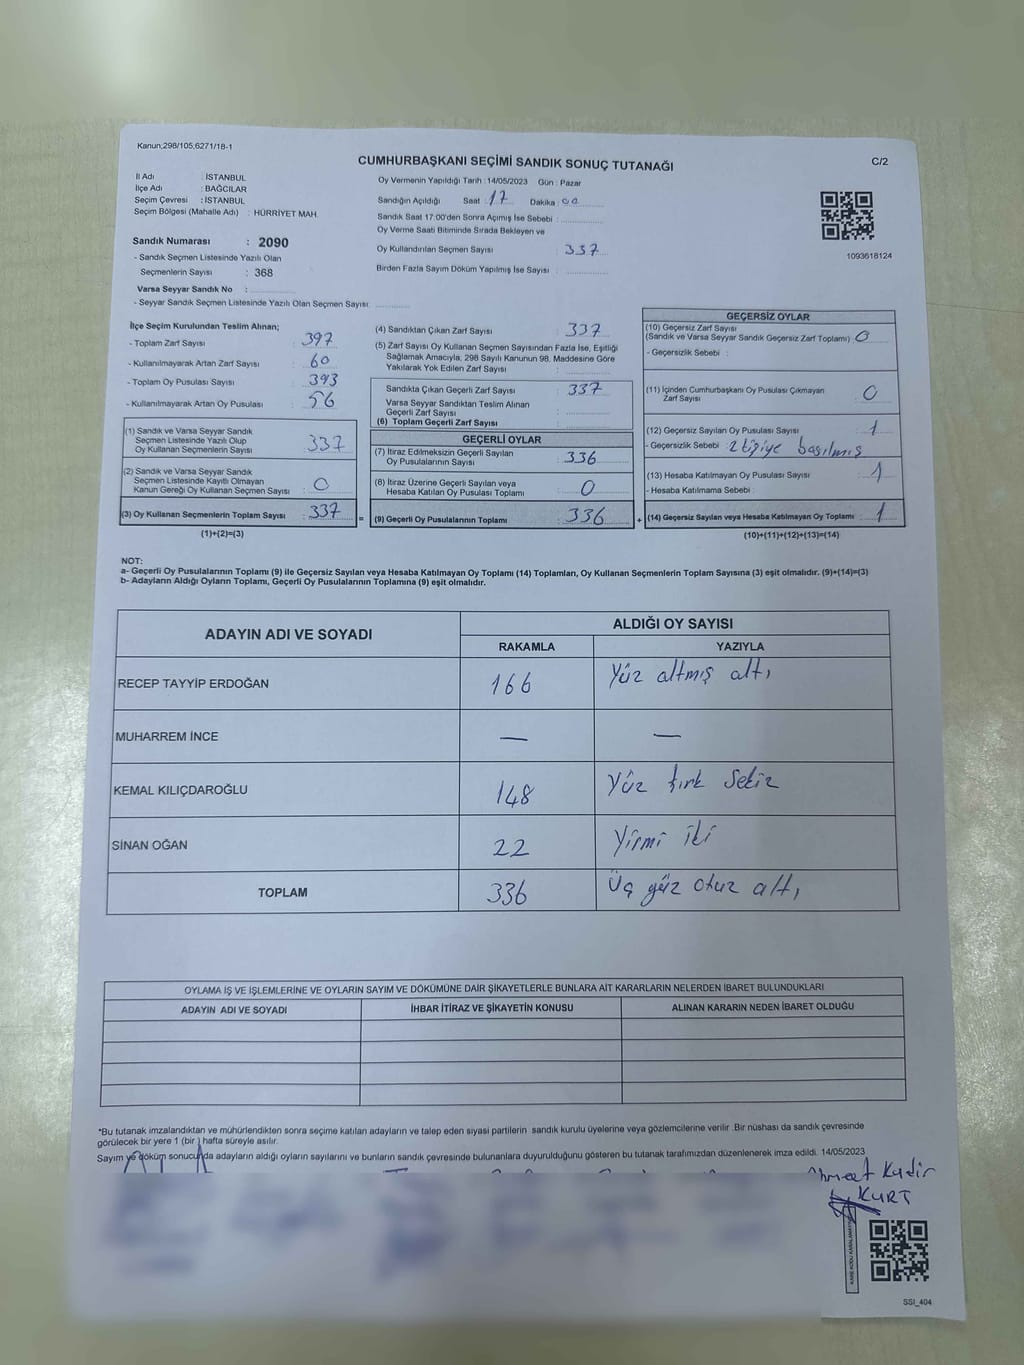 Kanun;298/105,6271/18-1
CUMHURBAŞKANI SEÇİMİ SANDIK SONUÇ TUTANAĞI
C/2
İl Adı : İSTANBUL
İlçe Adı : BAĞCILAR
Seçim Çevresi : İSTANBUL
Seçim Bölgesi (Mahalle Adı) : HÜRRİYET MAH.
Sandık Numarası : 2090
- Sandık Seçmen Listesinde Yazılı Olan
Seçmenlerin Sayısı : 368
Varsa Seyyar Sandık No :
- Seyyar Sandık Seçmen Listesinde Yazılı Olan Seçmen Sayısı:
Oy Vermenin Yapıldığı Tarih :14/05/2023 Gün : Pazar
Sandığın Açıldığı Saat : 17 Dakika : 00
Sandık Saat 17:00'den Sonra Açımış İse Sebebi :
Oy Verme Saati Bitiminde Sırada Bekleyen ve
Oy Kullandırılan Seçmen Sayısı : 337
Birden Fazla Sayım Döküm Yapılmış İse Sayısı :
1093618124
İlçe Seçim Kurulundan Teslim Alınan;
- Toplam Zarf Sayısı : 397
- Kullanılmayarak Artan Zarf Sayısı : 60
- Toplam Oy Pusulası Sayısı : 393
- Kullanılmayarak Artan Oy Pusulası : 56
(1) Sandık ve Varsa Seyyar Sandık
Seçmen Listesinde Yazılı Olup
Oy Kullanan Seçmenlerin Sayısı : 337
(2) Sandık ve Varsa Seyyar Sandık
Seçmen Listesinde Kayıtlı Olmayan
Kanun Gereği Oy Kullanan Seçmen Sayısı : 0
(3) Oy Kullanan Seçmenlerin Toplam Sayısı : 337
(1)+(2)=(3)
(4) Sandıktan Çıkan Zarf Sayısı : 337
(5) Zarf Sayısı Oy Kullanan Seçmen Sayısından Fazla İse, Eşitliği
Sağlamak Amacıyla, 298 Sayılı Kanunun 98. Maddesine Göre
Yakılarak Yok Edilen Zarf Sayısı :
Sandıkta Çıkan Geçerli Zarf Sayısı : 337
Varsa Seyyar Sandıktan Teslim Alınan
Geçerli Zarf Sayısı :
(6) Toplam Geçerli Zarf Sayısı :
GEÇERLİ OYLAR
(7) İtiraz Edilmeksizin Geçerli Sayılan
Oy Pusulalarının Sayısı : 336
(8) İtiraz Üzerine Geçerli Sayılan veya
Hesaba Katılan Oy Pusulası Toplamı : 0
= (9) Geçerli Oy Pusulalarının Toplamı : 336
GEÇERSİZ OYLAR
(10) Geçersiz Zarf Sayısı
(Sandık ve Varsa Seyyar Sandık Geçersiz Zarf Toplamı) : 0
- Geçersizlik Sebebi :
(11) İçinden Cumhurbaşkanı Oy Pusulası Çıkmayan
Zarf Sayısı : 0
(12) Geçersiz Sayılan Oy Pusulası Sayısı : 1
- Geçersizlik Sebebi : 2 kişiye basılmış
(13) Hesaba Katılmayan Oy Pusulası Sayısı : 1
- Hesaba Katılmama Sebebi :
+ (14) Geçersiz Sayılan veya Hesaba Katılmayan Oy Toplamı : 1
(10)+(11)+(12)+(13)=(14)
NOT:
a- Geçerli Oy Pusulalarının Toplamı (9) ile Geçersiz Sayılan veya Hesaba Katılmayan Oy Toplamı (14) Toplamları, Oy Kullanan Seçmenlerin Toplam Sayısına (3) eşit olmalıdır. (9)+(14)=(3)
b- Adayların Aldığı Oyların Toplamı, Geçerli Oy Pusulalarının Toplamına (9) eşit olmalıdır.
ADAYIN ADI VE SOYADI ALDIĞI OY SAYISI
RAKAMLA YAZIYLA
RECEP TAYYİP ERDOĞAN 166 Yüz altmış altı
MUHARREM İNCE — —
KEMAL KILIÇDAROĞLU 148 Yüz kırk Sekiz
SİNAN OĞAN 22 Yirmi iki
TOPLAM 336 Üç yüz otuz altı
OYLAMA İŞ VE İŞLEMLERİNE VE OYLARIN SAYIM VE DÖKÜMÜNE DAİR ŞİKAYETLERLE BUNLARA AİT KARARLARIN NELERDEN İBARET BULUNDUKLARI
ADAYIN ADI VE SOYADI İHBAR İTİRAZ VE ŞİKAYETİN KONUSU ALINAN KARARIN NEDEN İBARET OLDUĞU
*Bu tutanak imzalandıktan ve mühürlendikten sonra seçime katılan adayların ve talep eden siyasi partilerin sandık kurulu üyelerine veya gözlemcilerine verilir .Bir nüshası da sandık çevresinde
görülecek bir yere 1 (bir ) hafta süreyle asılır.
Sayım ve döküm sonucunda adayların aldığı oyların sayılarını ve bunların sandık çevresinde bulunanlara duyurulduğunu gösteren bu tutanak tarafımızdan düzenlenerek imza edildi. 14/05/2023
Ahmet Kadir
KURT
SSI_404